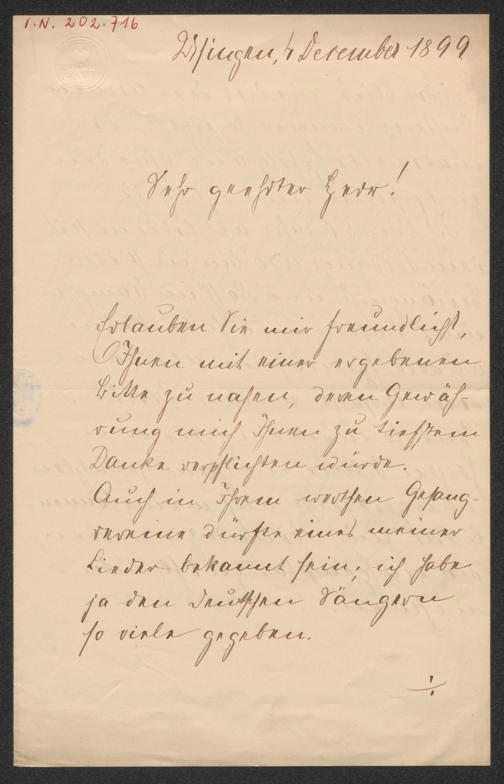 I.N. 202.716
Usingen, 4 December 1899
Sehr geehrter Herr!
Erlauben Sie mir freundlichst,
Ihnen mit einer ergebenen
Bitte zu nahen, deren Gewäh-
rung mich Ihnen zu tiefstem
Danke verpflichten würde.
Auch in Ihrem werthen Gesang-
vereine dürfte eines meiner
Lieder bekannt sein; ich habe
ja den deutschen Sängern
so viele gegeben.
./.